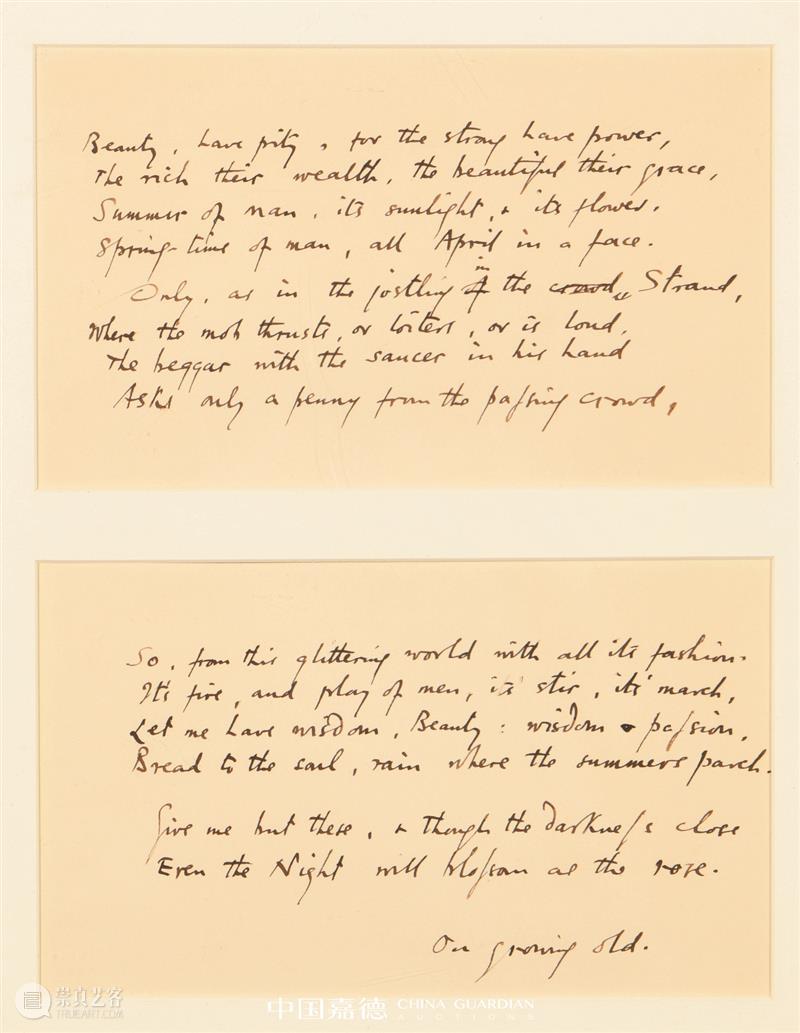 Beauty, have pity, for the strong have power,
The rich their wealth, the beautiful their grace,
Summer of man, its sunlight, & its flower,
Spring-time of man, all April in a face.
Only, as in the jostling in the crowd, Strand,
Where the mob thrusts, or loiters, or is loud,
The beggar with the saucer in his hand
Asks only a penny from the paſsing crowd,
So, from this glittering world with all its fashion.
It's fire, and play of men, its stir, its march,
Let me have wisdom, Beauty: wisdom & paſsion,
Bread to the soul, rain where the summers parch.
Give me but these, & though the darkneſs close
Even the Night will bloſsom as the rose.
On growing old.
崇真艺客
TRUEART.COM
中国嘉德 CHINA GUARDIAN
AUCTIONS